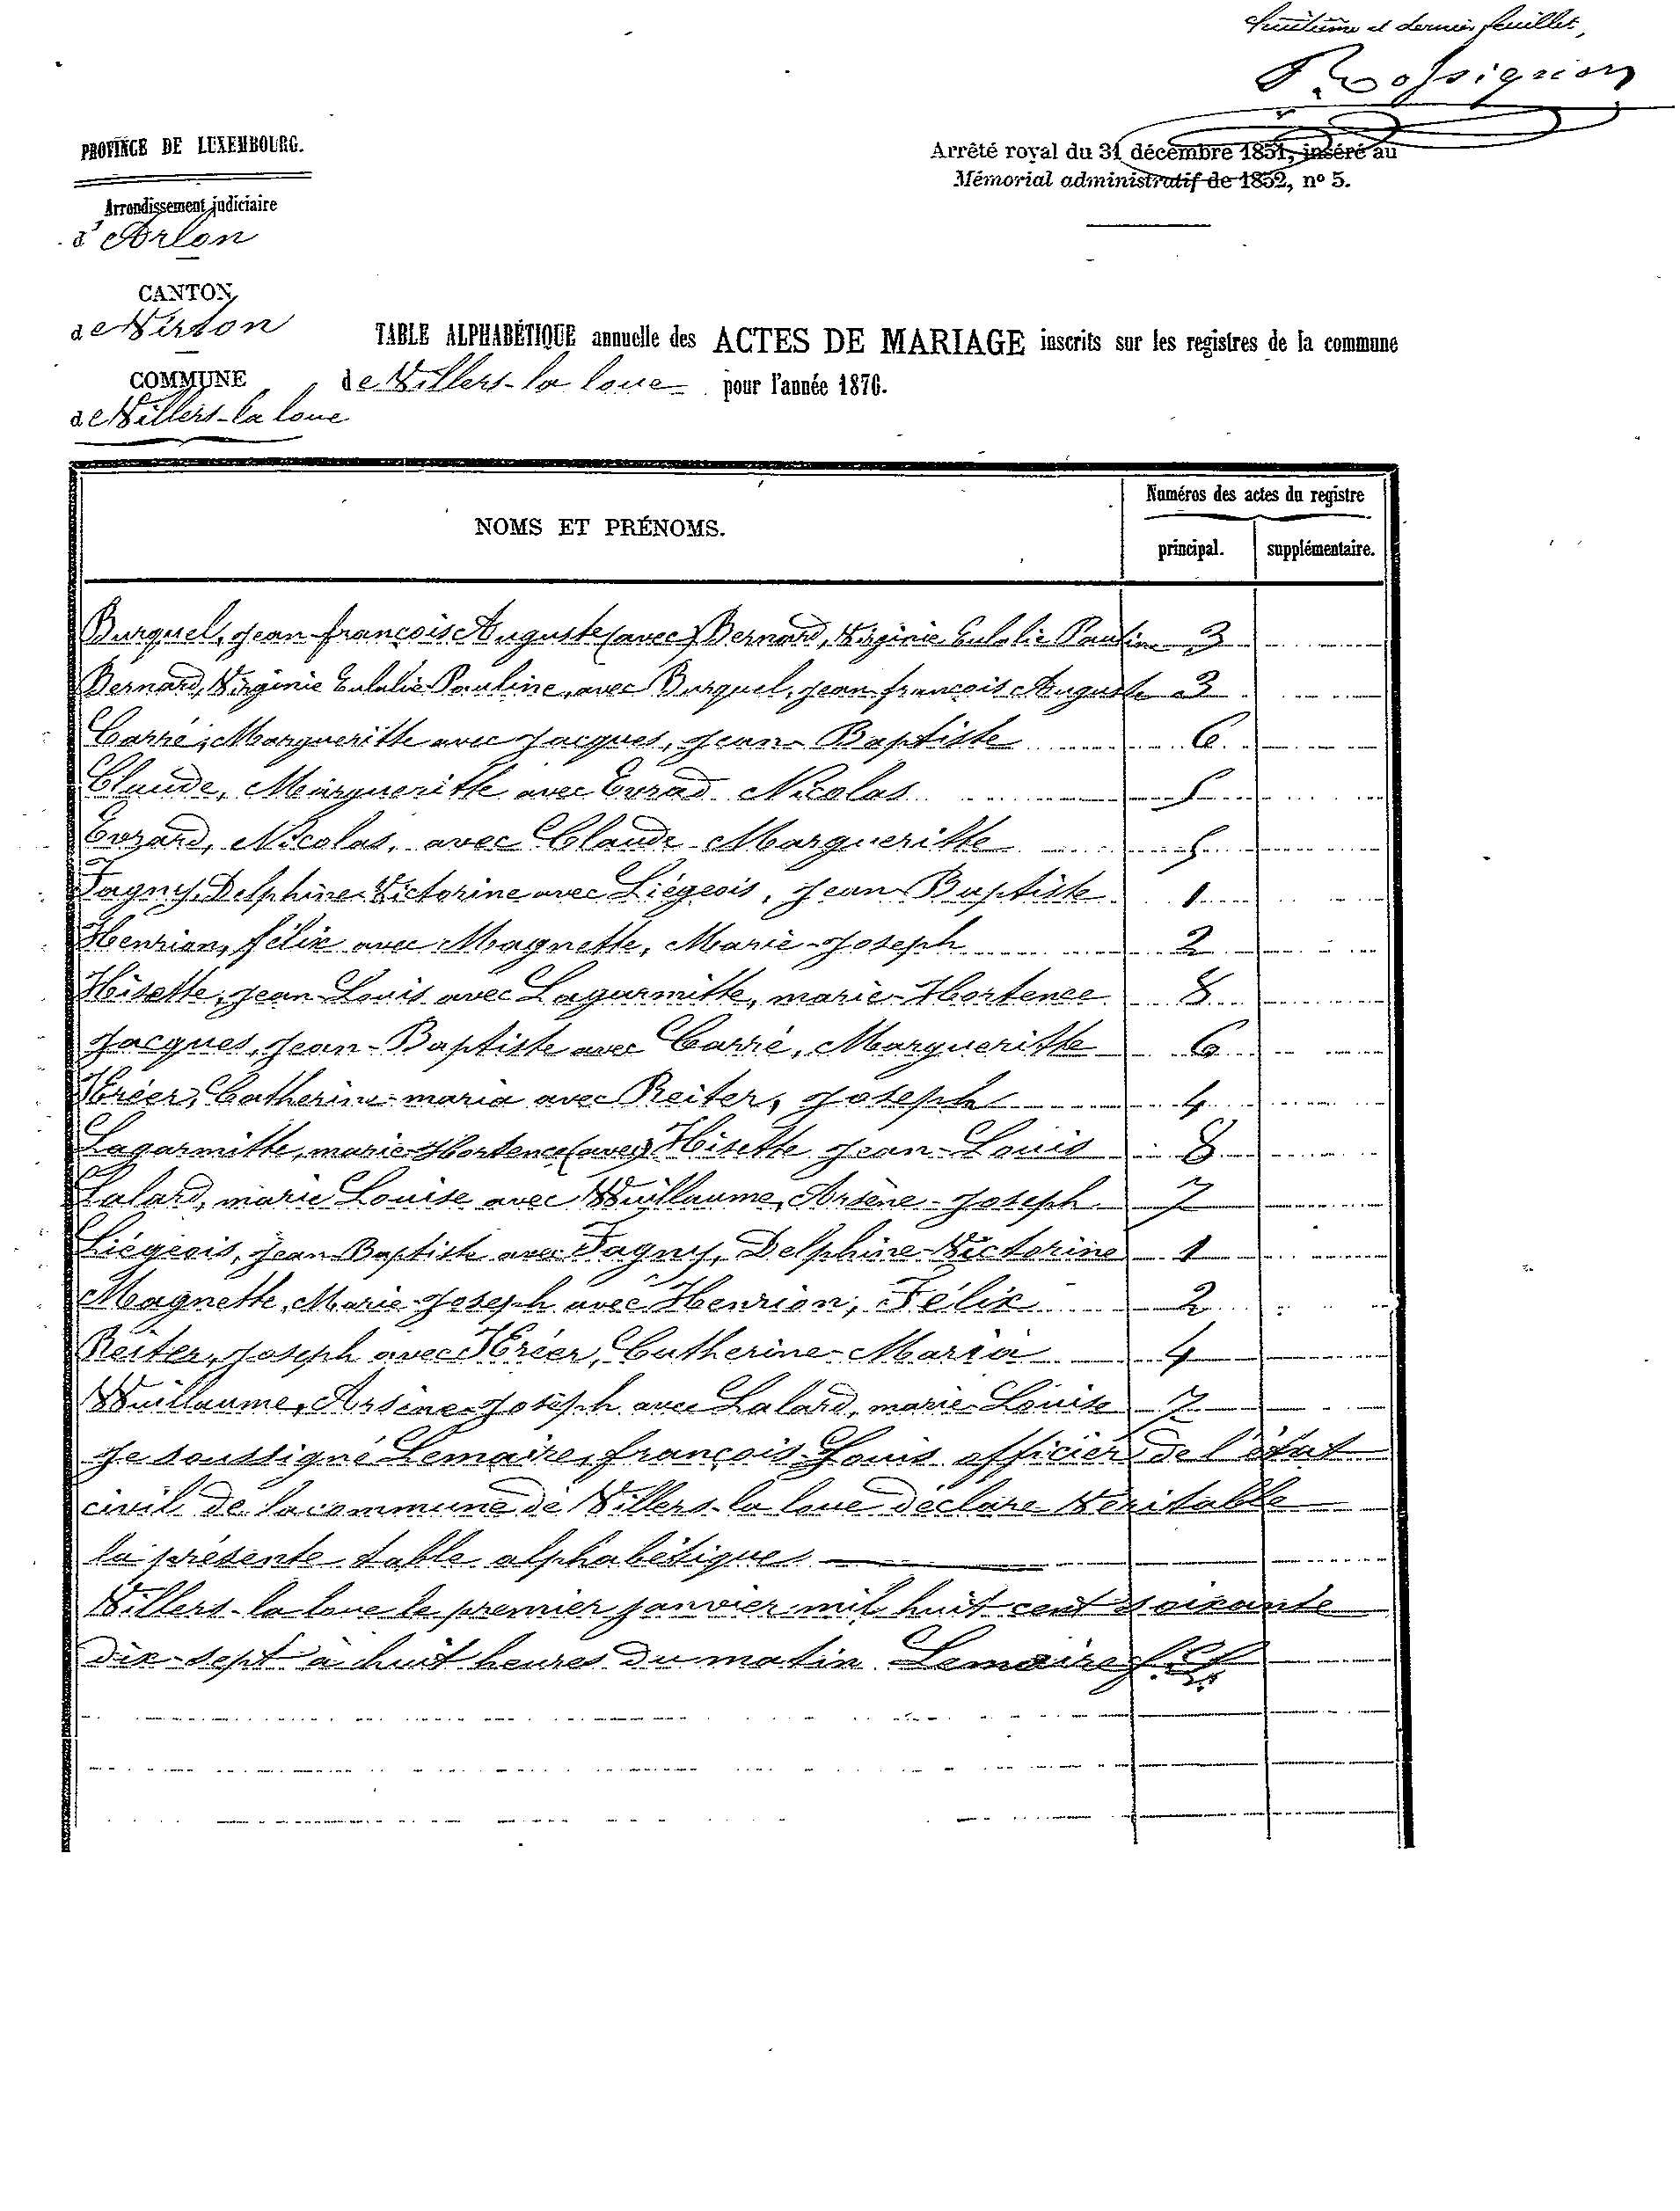 huitième et dernier feuillet,
Rossignon
PROVINCE DE LUXEMBOURG.
Arrêté royal du 31 décembre 1851, inséré au
Mémorial administratif de 1852, nº 5.
Arrondissement judiciaire
d'Arlon
CANTON
de Virton
TABLE ALPHABÉTIQUE annuelle des ACTES DE MARIAGE inscrits sur les registres de la commune
COMMUNE
de Villers-la loue pour l'année 1876.
de Villers-la loue
Numéros des actes du registre
NOMS ET PRÉNOMS.
principal. supplémentaire.
Burquel, jean françois Auguste (avec) Bernard, Virginie Eulalie Pauline 3
Bernard, Virginie Eulalie Pauline, avec Burquel, jean françois Auguste 3
Carré, Margueritte avec Jacques, Jean Baptiste 6
Claude, Margueritte avec Evrad Nicolas 5
Evrard, Nicolas, avec Claude Margueritte 5
Fagny, Delphine Victorine avec Liégeois, Jean Baptiste 1
Henrion, félix avec Magnette, Marie-Joseph 2
Hisette, jean Louis avec Lagarmitte, marie-Hortence 8
Jacques, Jean-Baptiste avec Carré, Margueritte 6
Kréer, Catherine-maria avec Reiter, Joseph 4
Lagarmitte, marie-Hortence (avec) Hisette Jean-Louis 8
Lalard, marie Louise avec Wuillaume, Arsène-Joseph 7
Liégeois, Jean-Baptiste avec Fagny, Delphine-Victorine 1
Magnette, Marie-Joseph avec Henrion, Félix 2
Reiter, Joseph avec Kréer, Catherine-Maria 4
Wuillaume, Arsène-Joseph avec Lalard, marie-Louise 7
Je soussigné Lemaire, françois-Louis officier de l'état
civil de la commune de Villers-la loue déclare véritable
la présente table alphabétique
Villers-la loue le premier janvier mil huit cent soixante
dix-sept à huit heures du matin Lemaire f. L.